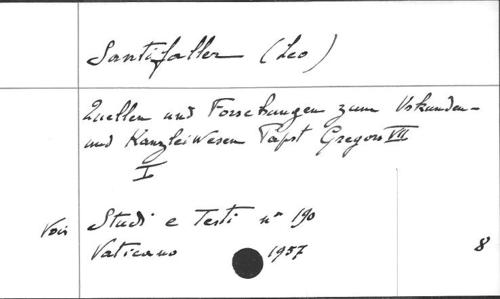 Santifaller (Leo)
Quellen und Forschungen zum Urkunden-
und Kanzleiwesen Papst Gregors VII
I
Voir Studi e Testi n° 190
Vaticano 1957
8